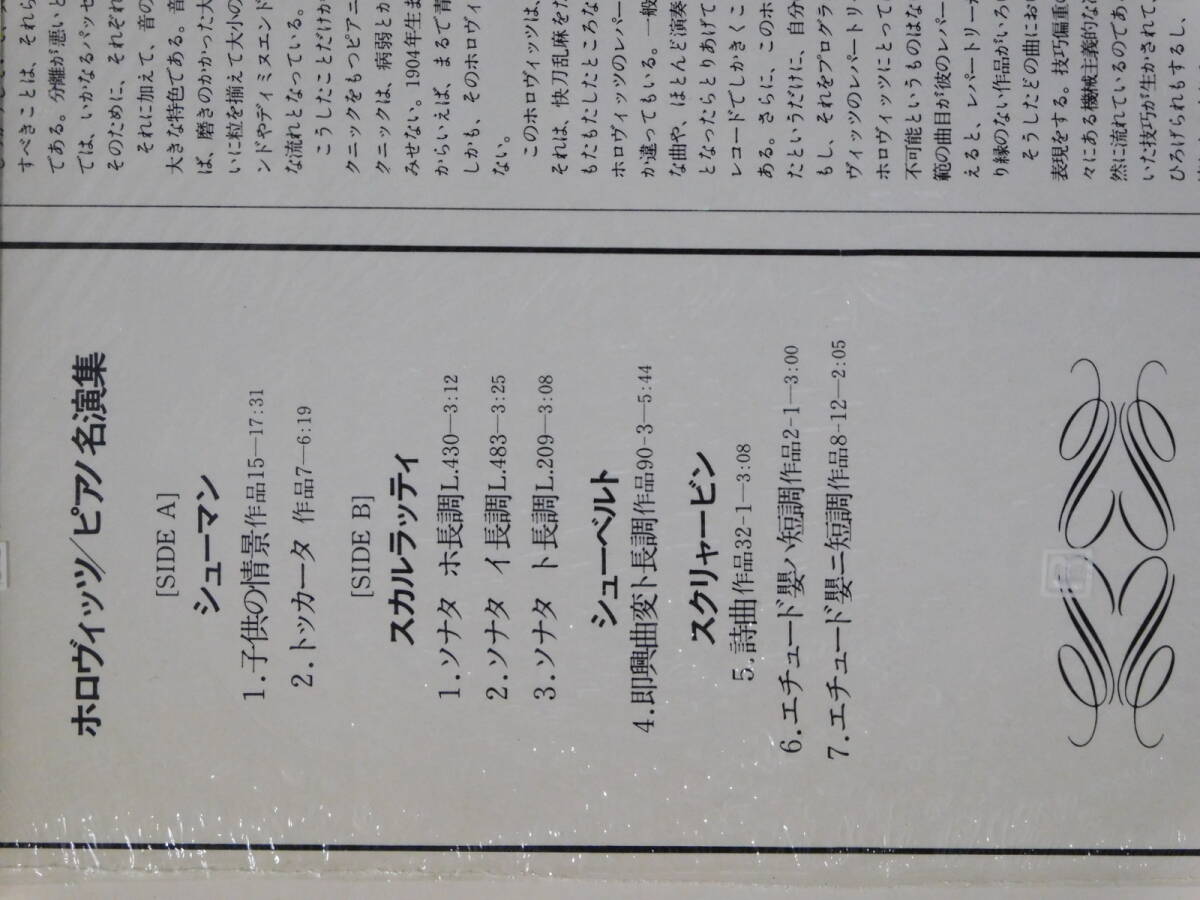 ホロヴィッツ/ピアノ名演集
[SIDE A]
シューマン
1.子供の情景作品15—17:31
2.トッカータ 作品7—6:19
[SIDE B]
スカルラッティ
1.ソナタ ホ長調L.430—3:12
2.ソナタ イ長調L.483—3:25
3.ソナタ ト長調L.209—3:08
シューベルト
4.即興曲変ト長調作品90-3—5:44
スクリャービン
5.詩曲作品32-1—3:08
6.エチュード嬰ハ短調作品2-1—3:00
7.エチュード嬰ニ短調作品8-12—2:05
すべきことは、それら
てある。分離が悪いと
ては、いかなるパッセ
そのために、それぞれ
それに加えて、音の
大きな特色である。音
ば、磨きのかかった大
いに粒を揃えて大小の
ンドやディミヌエンド
な流れとなっている。
こうしたことだけか
クニックをもつピアニ
クニックは、病弱とか
みせない。1904年生ま
からいえば、まるで青
しかも、そのホロヴィ
ない。
このホロヴィッツは、
それは、快刀乱麻をた
もたもたしたところな
ホロヴィッツのレパー
か違ってもいる。一般
な曲や、ほとんど演奏
となったらとりあげて
レコードでしかきくこ
ある。さらに、このホ
たというだけに、自分
もし、それをプログラ
ヴィッツのレパートリ
ホロヴィッツにとって
不可能というものはな
範の曲目が彼のレパー
えると、レパートリー
り縁のない作品がいろ
そうしたどの曲にお
表現をする。技巧偏重
々にある機械主義的な
然に流れているのであ
いた技巧が生かされて、
ひろげられもするし、